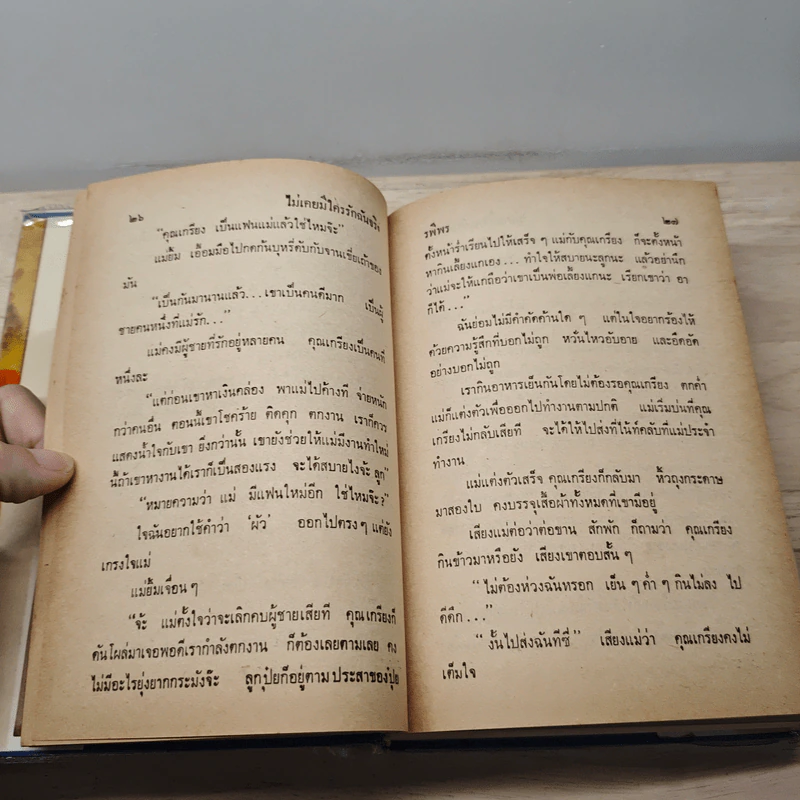 ๒๖ ไม่เคยมีใครรักฉันจริง
“คุณเกรียง เป็นแฟนแม่แล้วใช่ไหมจ๊ะ”
แม่ยิ้ม เอื้อมมือไปกดก้นบุหรี่ดับกับจานเขี่ยเถ้าของ
มัน
“เป็นกันมานานแล้ว...เขาเป็นคนดีมาก เป็นผู้
ชายคนหนึ่งที่แม่รัก...”
แม่คงมีผู้ชายที่รักอยู่หลายคน คุณเกรียงเป็นคนที่
หนึ่งละ
“แต่ก่อนเขาหาเงินคล่อง พาแม่ไปค้างที จ่ายหนัก
กว่าคนอื่น ตอนนี้เขาโชคร้าย ติดคุก ตกงาน เราก็ควร
แสดงน้ำใจกับเขา ยิ่งกว่านั้น เขายังช่วยให้แม่มีงานทำใหม่
นี่ถ้าเขาหางานได้เราก็เป็นสองแรง จะได้สบายไงจ้ะ ลูก”
“หมายความว่า แม่ มีแฟนใหม่อีก ใช่ไหมจ๊ะ?”
ใจฉันอยากใช้คำว่า ‘ผัว’ ออกไปตรงๆ แต่ยัง
เกรงใจแม่
แม่ยิ้มเจื่อนๆ
“จ้ะ แม่ตั้งใจว่าจะเลิกคบผู้ชายเสียที คุณเกรียงก็
ดันโผล่มาเจอพอดีเรากำลังตกงาน ก็ต้องเลยตามเลย คง
ไม่มีอะไรยุ่งยากกระมังจ๊ะ ลูกปุ๋ยก็อยู่ตามประสาของปุ๋ย
รพีพร ๒๗
ตั้งหน้าร่ำเรียนไปให้เสร็จๆ แม่กับคุณเกรียง ก็จะตั้งหน้า
หากินเลี้ยงแกเอง...ทำใจให้สบายนะลูกนะ แล้วอย่านึก
ว่าแม่จะให้แกถือว่าเขาเป็นพ่อเลี้ยงแกนะ เรียกเขาว่า อา
ก็ได้...”
ฉันย่อมไม่มีคำคัดค้านใดๆ แต่ในใจอยากร้องไห้
ด้วยความรู้สึกที่บอกไม่ถูก หวั่นไหวอับอาย และอึดอัด
อย่างบอกไม่ถูก
เรากินอาหารเย็นกันโดยไม่ต้องรอคุณเกรียง ตกค่ำ
แม่ก็แต่งตัวเพื่อออกไปทำงานตามปกติ แม่เริ่มบ่นที่คุณ
เกรียงไม่กลับเสียที จะได้ให้ไปส่งที่ไน้ท์คลับที่แม่ประจำ
ทำงาน
แม่แต่งตัวเสร็จ คุณเกรียงก็กลับมา หิ้วถุงกระดาษ
มาสองใบ คงบรรจุเสื้อผ้าทั้งหมดที่เขามีอยู่
เสียงแม่ต่อว่าต่อขาน สักพัก ก็ถามว่า คุณเกรียง
กินข้าวมาหรือยัง เสียงเขาตอบสั้นๆ
“ไม่ต้องห่วงฉันหรอก เย็นๆ ค่ำๆ กินไม่ลง ไป
ดีดีก...”
“งั้นไปส่งฉันทีซี่” เสียงแม่ว่า คุณเกรียงคงไม่
เต็มใจ